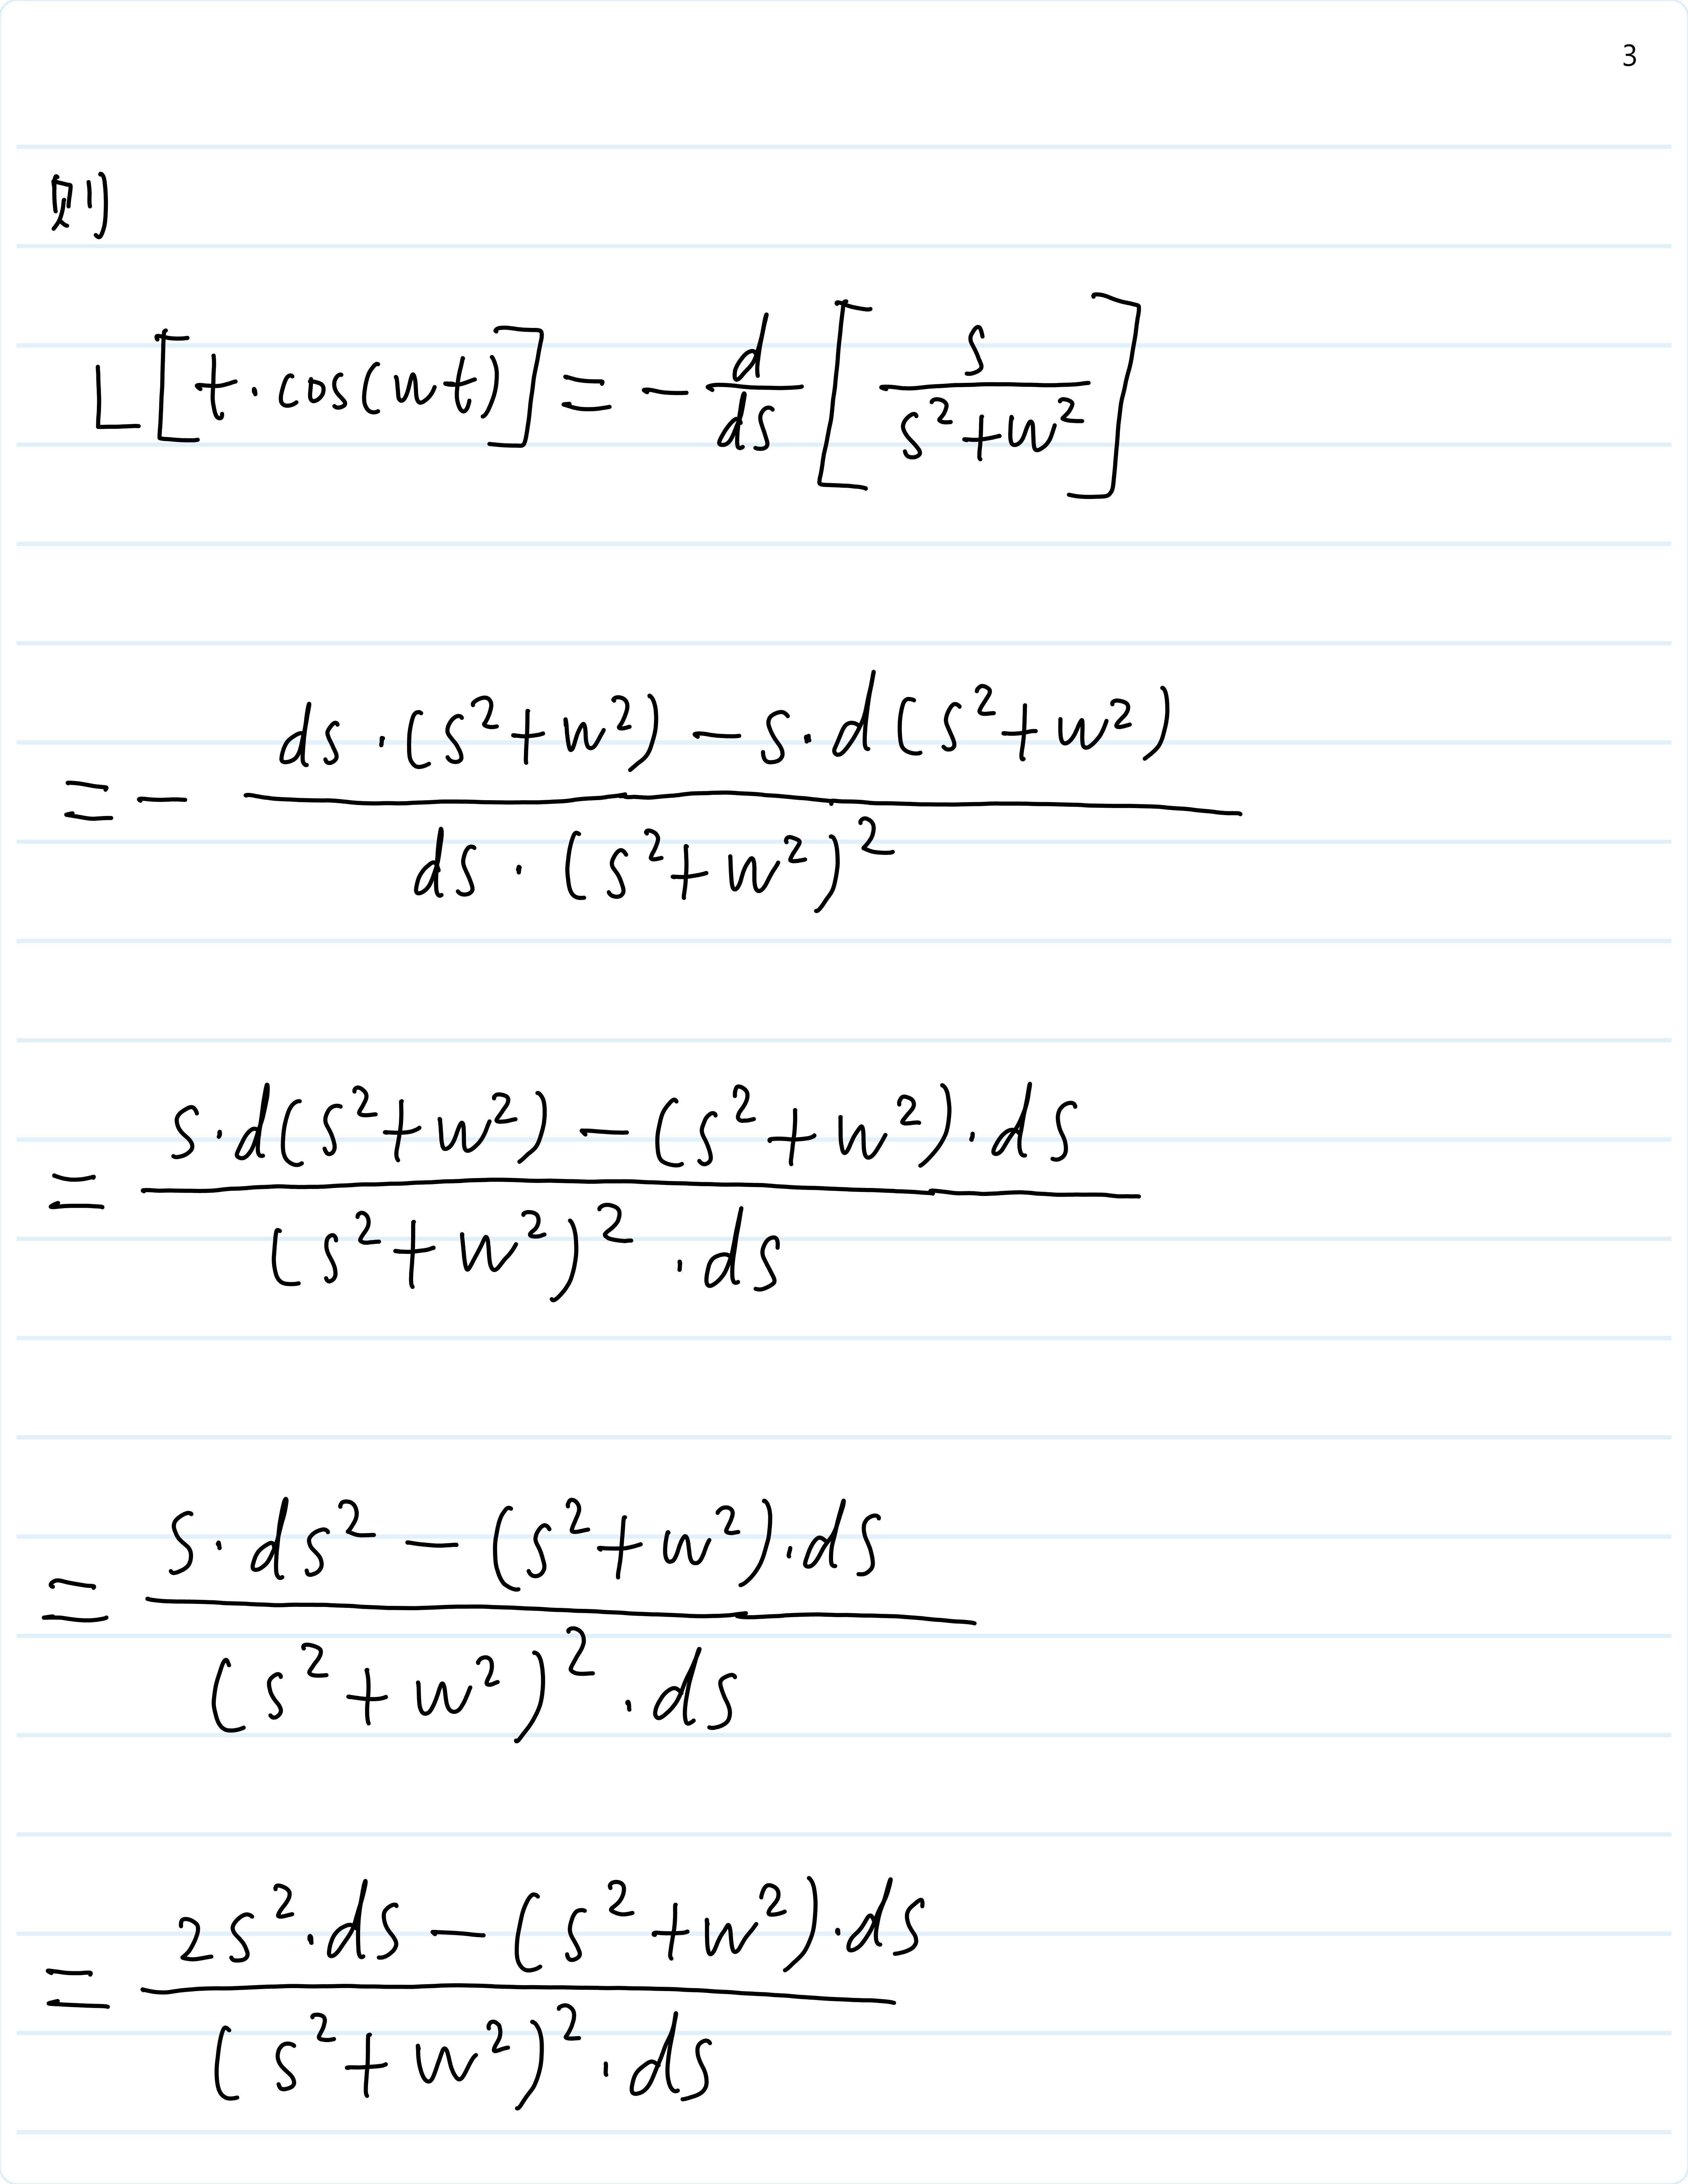 3
则
L[t·cos(wt)] = -d/ds [s/(s²+w²)]
= - (ds·(s²+w²) - s·d(s²+w²))/(ds·(s²+w²)²)
= (s·d(s²+w²) - (s²+w²)·ds)/((s²+w²)²·ds)
= (s·ds² - (s²+w²)·ds)/((s²+w²)²·ds)
= (2s²·ds - (s²+w²)·ds)/((s²+w²)²·ds)